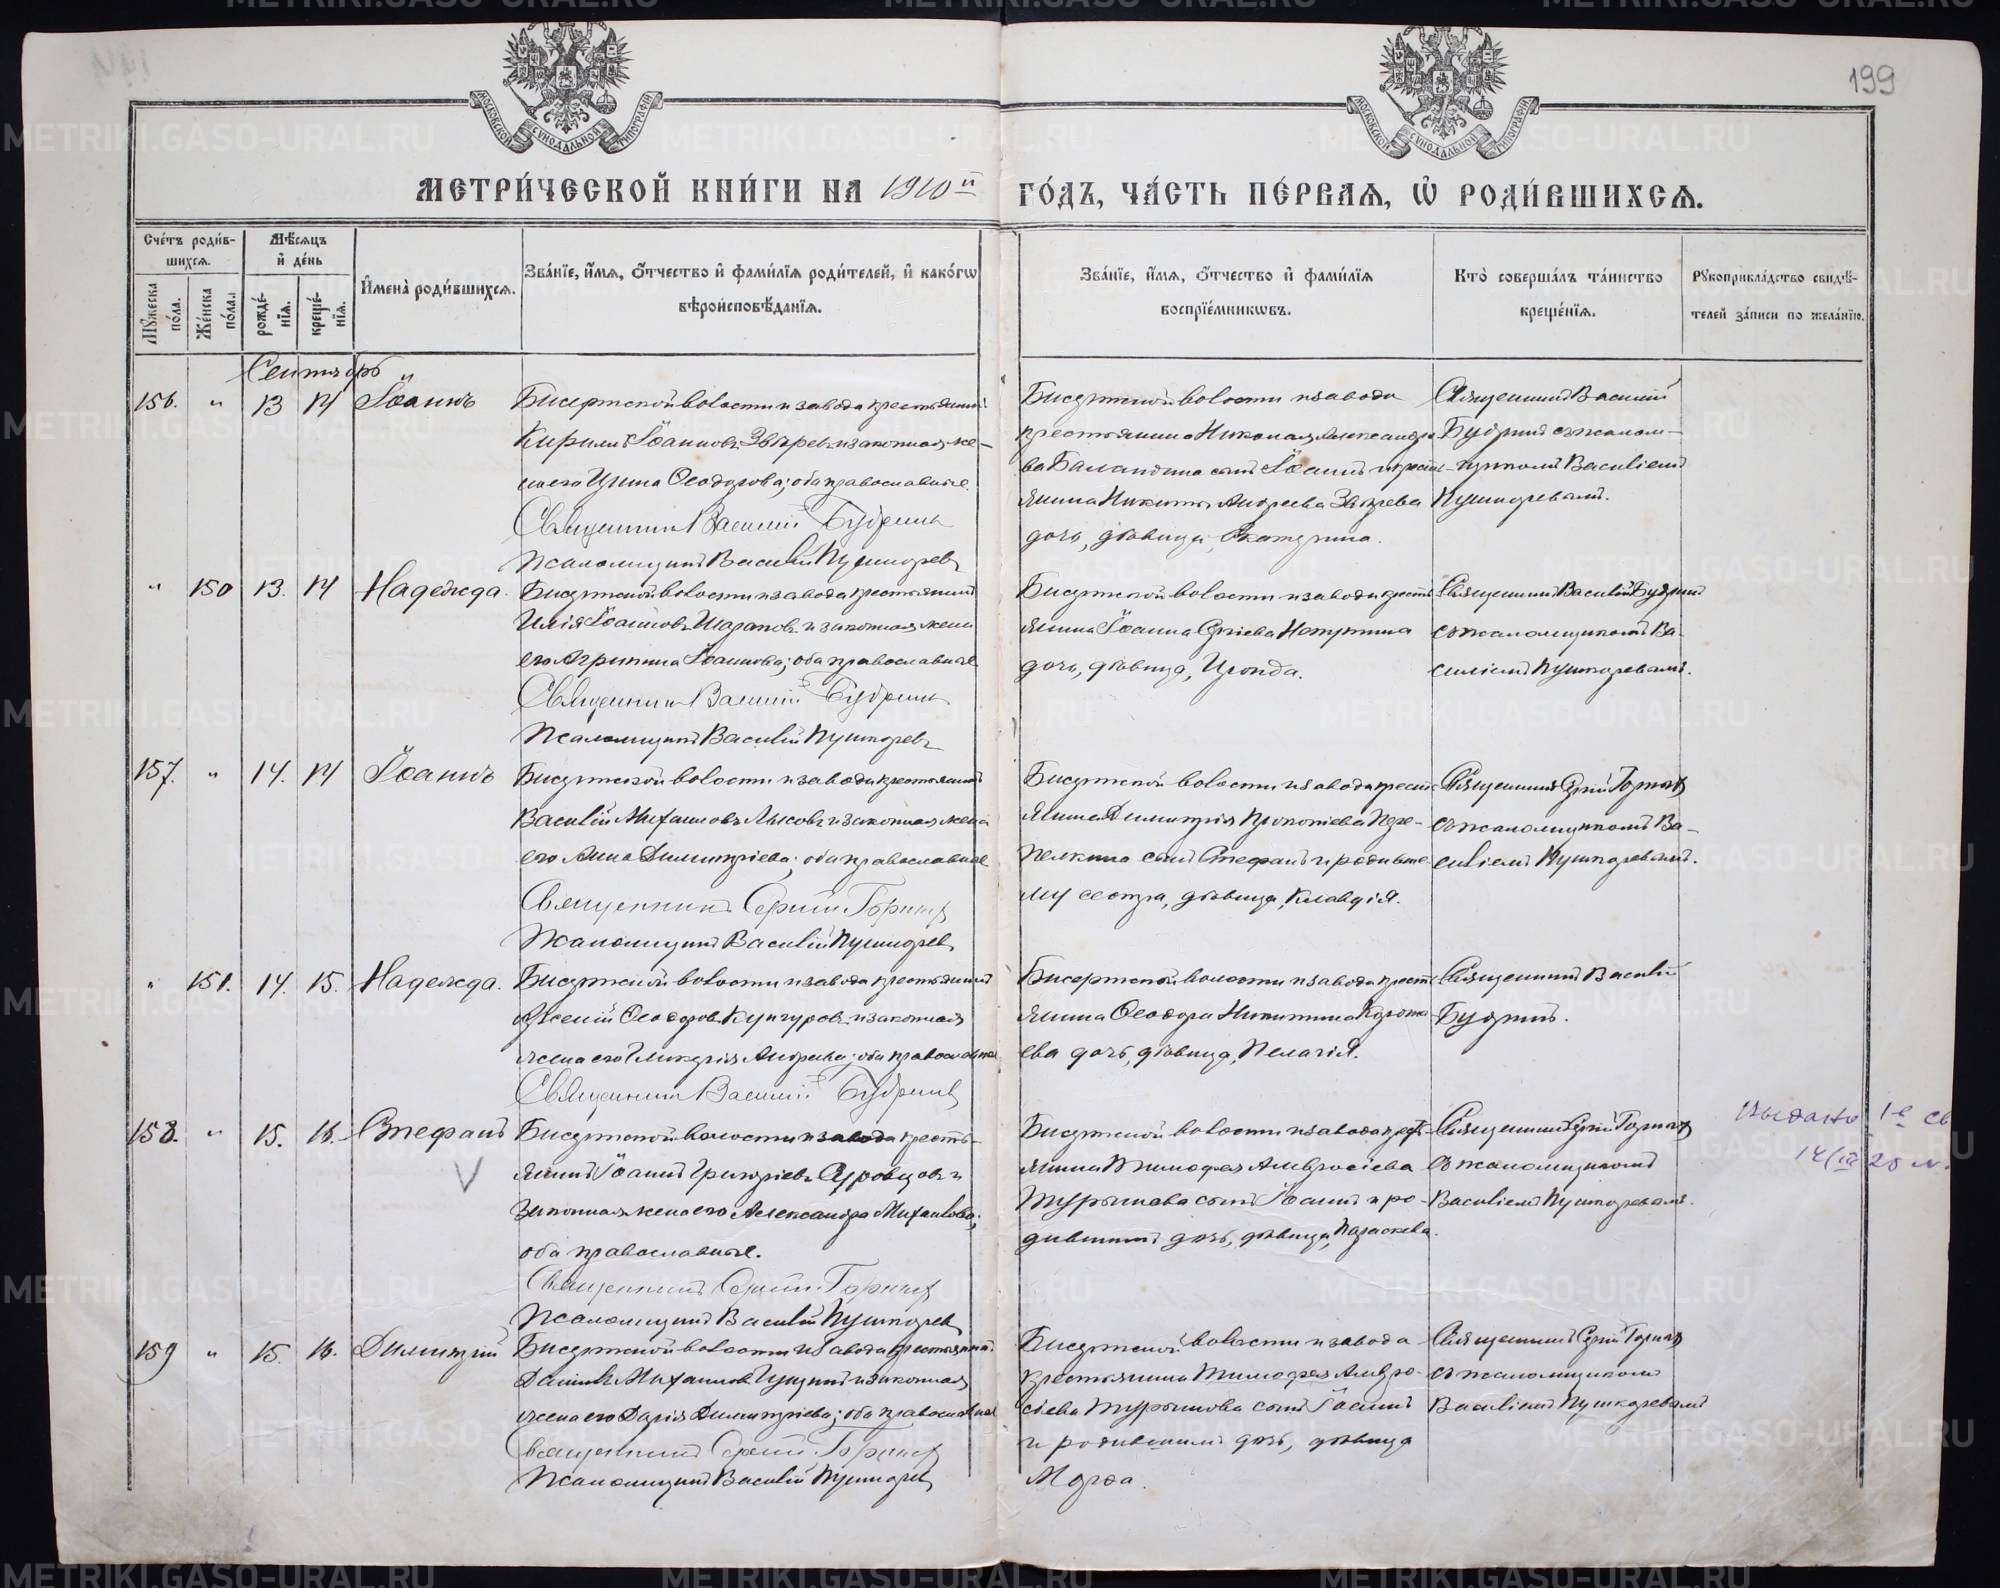 199
МОСКОВСКОЙ СѴНОДАЛЬНОЙ ТИПОГРАФІИ
МОСКОВСКОЙ СѴНОДАЛЬНОЙ ТИПОГРАФІИ
МЕТРИ́ЧЕСКОЙ КНИ́ГИ НА 1910й ГО́ДЪ, ЧА́СТЬ ПЕ́РВАѦ, Ѡ҆ РОДИ́ВШИХСѦ.
Сче́тъ роди́в-
шихсѧ.
Мꙋ́жеска по́ла.
Же́нска по́ла.
Мѣ́сѧцъ
и҆ де́нь
рожде́-
нїѧ.
креще́-
нїѧ.
И҆мена̀ роди́вшихсѧ.
Зва́нїе, и҆́мѧ, ѻ҆́тчество и҆ фами́лїѧ роди́телей, и҆ како́гѡ
вѣроисповѣ́данїѧ.
Зва́нїе, и҆́мѧ, ѻ҆́тчество и҆ фами́лїѧ
воспрїе́мникѡвъ.
Кто̀ соверша́лъ та́инство
креще́нїѧ.
Рꙋкоприкла́дство свидѣ́-
телей за́писи по жела́нїю.
Сентябрь
156. " 13 14 Іоаннъ
Бисертской волости и завода крестьянинъ
Кириллъ Іоанновъ Звѣревъ и законная же-
на его Ирина Ѳеодорова; оба православные.
Священникъ Василій Будринъ
Псаломщикъ Василій Пушкаревъ
Бисертской волости и завода
крестьянина Николая Александро
ва Баландина сынъ Іоаннъ и кресть-
янина Никиты Андреева Звѣрева
дочь, дѣвица, Екатерина.
Священникъ Василій
Будринъ съ псалом-
щикомъ Василіемъ
Пушкаревымъ.
" 150 13. 14 Надежда.
Бисертской волости и завода крестьянинъ
Илія Іоанновъ Шараповъ и законная жена
его Агрипина Іоаннова; оба православные
Священникъ Василій Будринъ
Псаломщикъ Василій Пушкаревъ
Бисертской волости и завода кресть
янина Іоанна
дочь, дѣвица,
Священникъ Василій Будринъ
съ псаломщикомъ Ва-
силіемъ Пушкаревымъ.
157. " 14. 14 Іоаннъ
Бисертской волости и завода крестьянинъ
Василій Михаиловъ Лысовъ и законная жена
его Анна Димитріева; оба православные
Священникъ Сергій
Псаломщикъ Василій Пушкаревъ
Бисертской волости и завода кресть
янина Димитрія Прокопіева Пере-
пелкина сынъ Стефанъ и родивше-
му сестра, дѣвица, Клавдія.
Священникъ Сергій
съ псаломщикомъ Ва-
силіемъ Пушкаревымъ.
" 151. 14. 15. Надежда.
Бисертской волости и завода крестьянинъ
Арсеній Ѳеодоровъ Кунгуровъ и законная
жена его Гликерія Андреева; оба православные
Священникъ Василій Будринъ
Бисертской волости и завода кресть
янина Ѳеодора Никитина
ева дочь, дѣвица, Пелагія.
Священникъ Василій
Будринъ.
158. " 15. 16. Стефанъ
Бисертской волости и завода кресть-
янинъ Іоаннъ Григоріевъ Суровцовъ и
законная жена его Александра Михаилова;
оба православные.
Священникъ Сергій
Псаломщикъ Василій Пушкаревъ
Бисертской волости и завода крест-
янина Тимофея Амвросіева
Турышева сынъ Іоаннъ и ро-
дившаго дочь, дѣвица, Параскева.
Священникъ Сергій
съ псаломщикомъ
Василіемъ Пушкаревымъ.
Выдано 1-е св
159 " 15. 16. Димитрій
Бисертской волости и завода крестьянинъ
Даніилъ Михаиловъ и законная
жена его Дарія Димитріева; оба православные
Священникъ Сергій
Псаломщикъ Василій Пушкаревъ
Бисертской волости и завода
крестьянина Тимофея Амвро-
сіева Турышова сынъ Іоаннъ
и дочь, дѣвица
Марѳа.
Священникъ Сергій
съ псаломщикомъ
Василіемъ Пушкаревымъ
METRIKI.GASO-URAL.RU